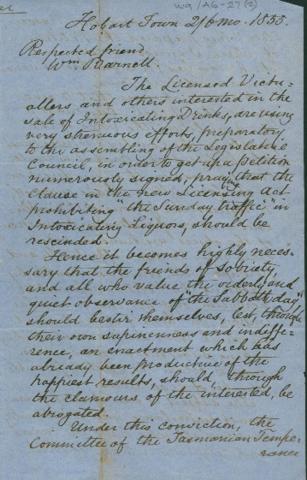 W9/A6-27(2)
Hobart Town 2/6 mo. 1855.
Respected friend
Wm Pearnell.
The Licensed Victu-
allers and others interested in the
sale of Intoxicating Drinks, are using
very strenuous efforts, preparatory
to the assembling of the Legislative
Council, in order to get up a petition
numerously signed, pray, that the
Clause in the new Licensing Act
prohibiting "the Sunday traffic" in
Intoxicating Liquors, should be
rescinded.
Hence it becomes highly neces-
sary that the friends of Sobriety,
and all who value the orderly and
quiet observance of "the Sabbath day"
should bestir themselves, lest, through
their own supineness and indiffe-
rence, an enactment which has
already been productive of the
happiest results, should, through
the clamours of the interested, be
abrogated.
Under this conviction, the
Committee of the Tasmanian Tempe-
rance